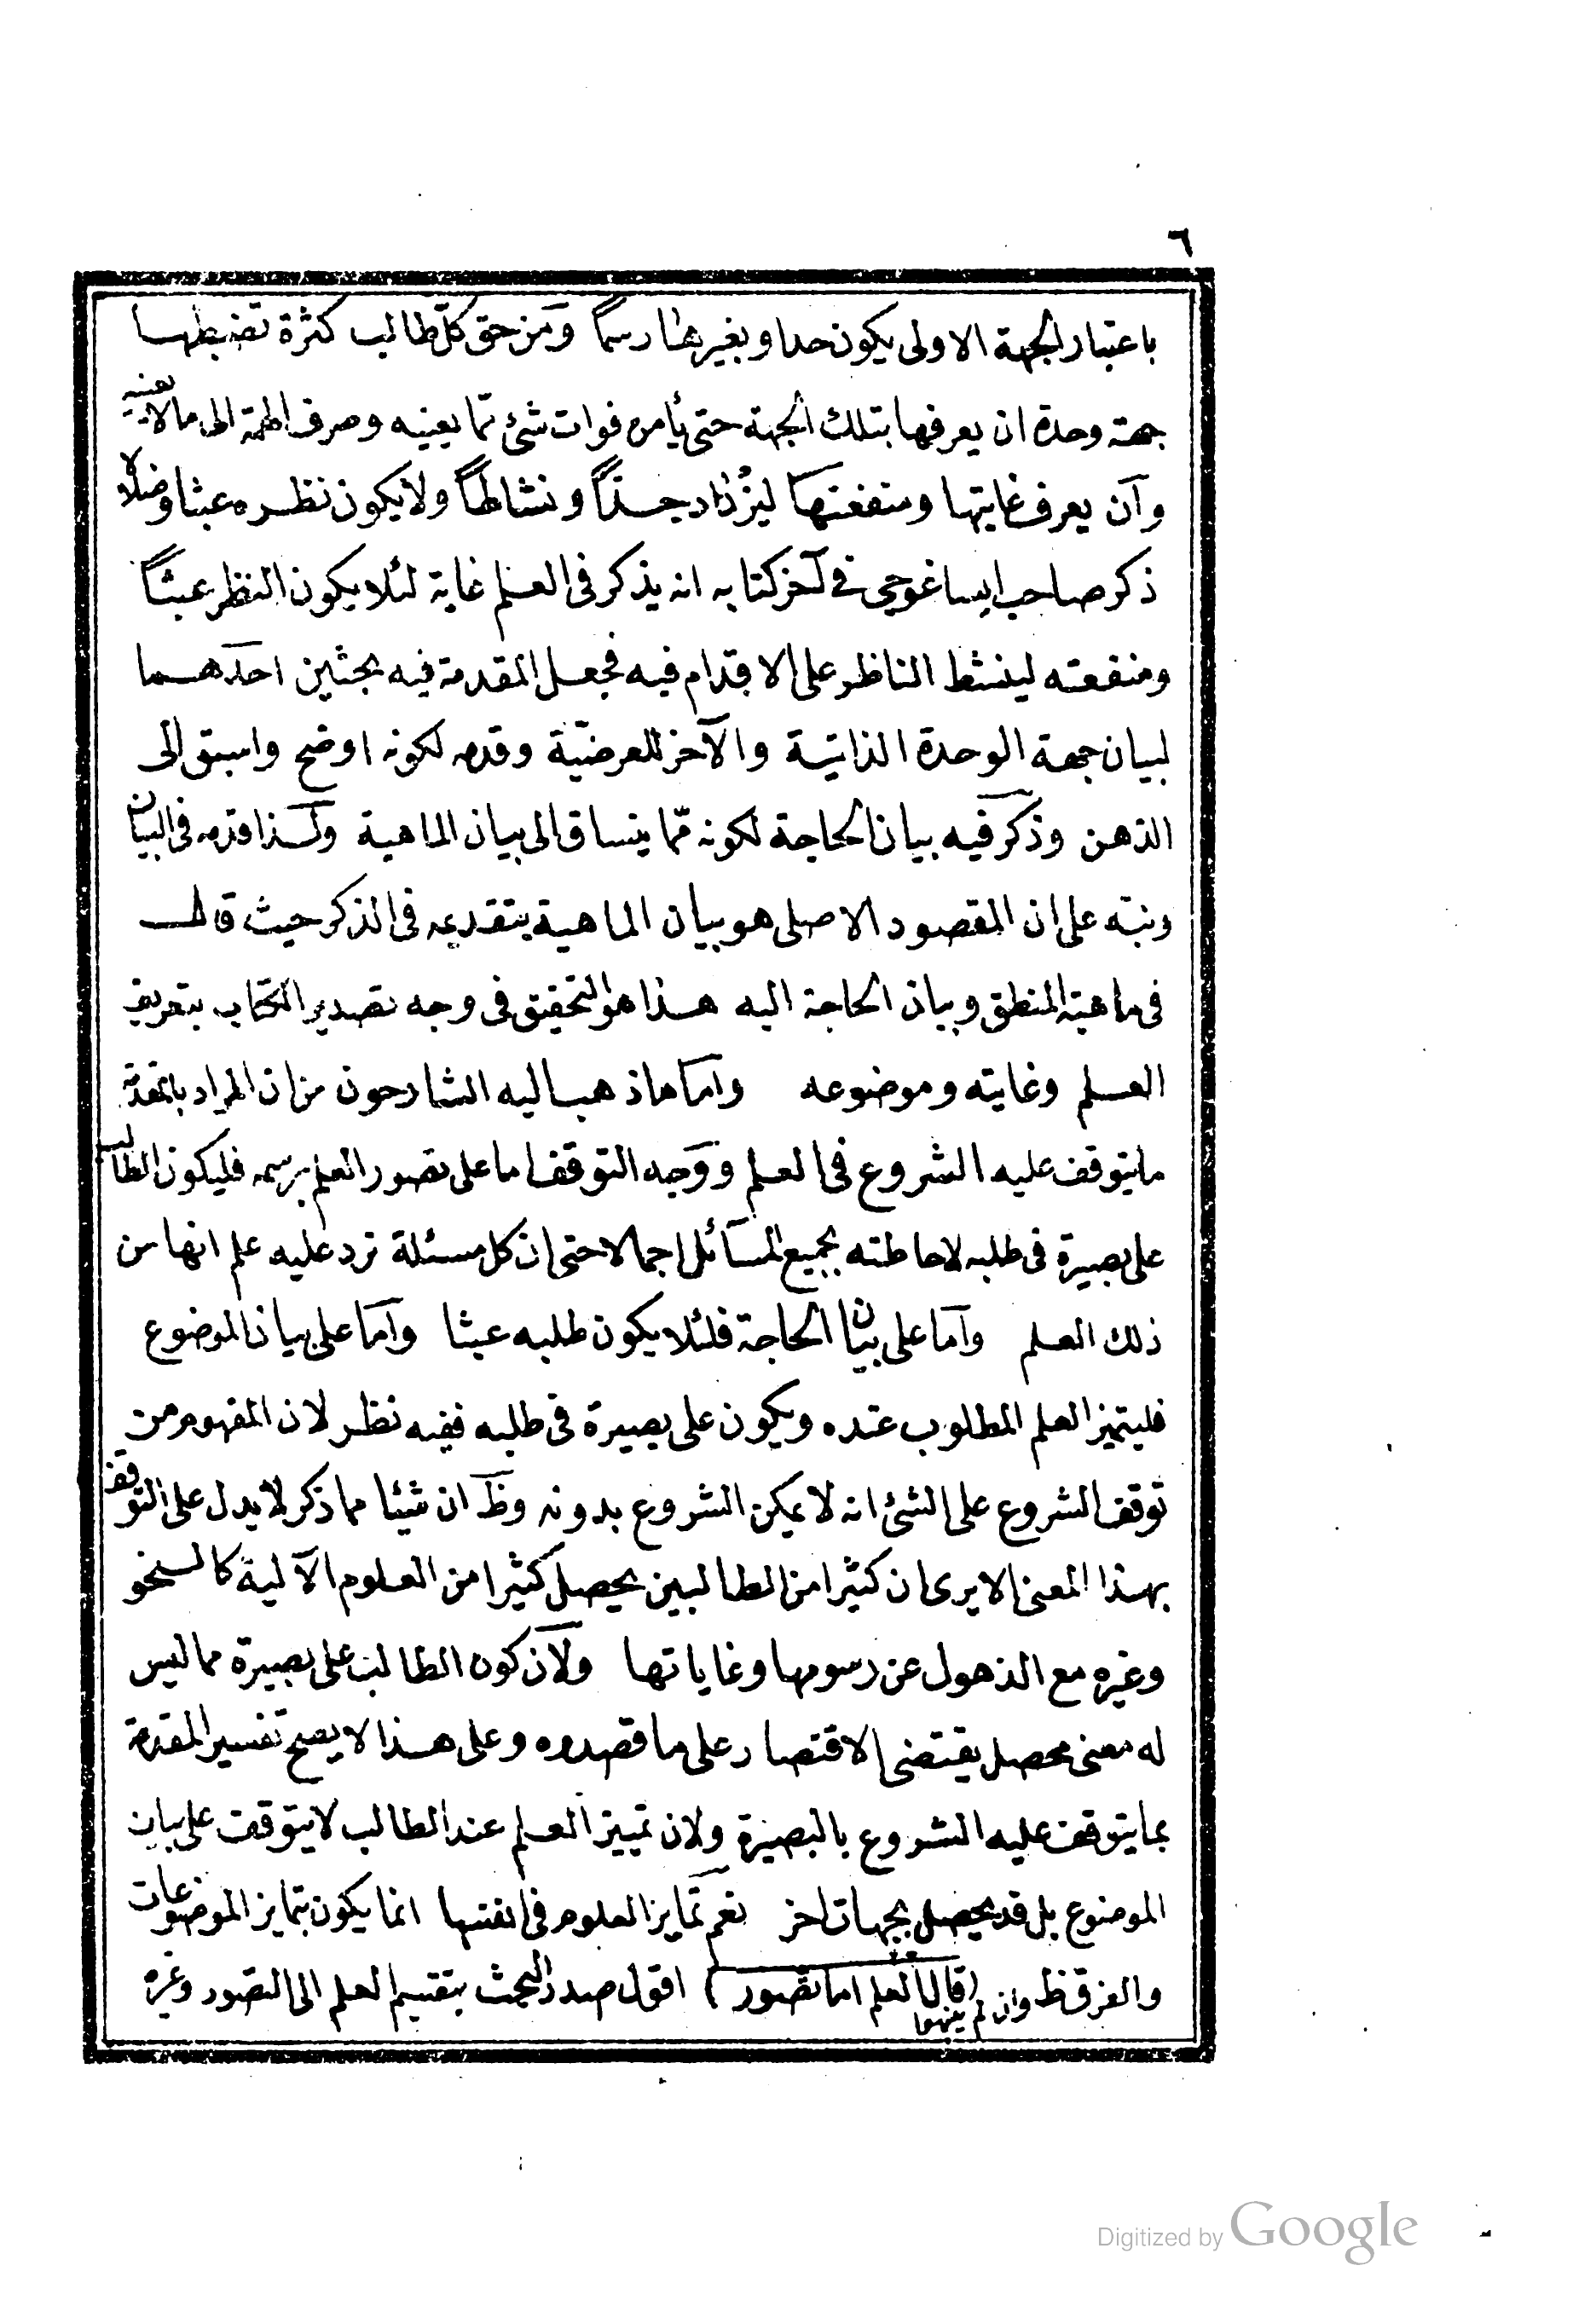 ٦
باعتبار الجهة الاولى يكون حدا وبغيرها رسماً ومن حق كل طالب كثرة تضبطها
جهة وحدة ان يعرفها بتلك الجهة حتى يأمن فوات شئ مما يعنيه وصرف الهمة الى ما لا يعنيه
وان يعرف غايتها ومنفعتها ليزداد جداً ونشاطاً ولا يكون نظره عبثا وضلالا
ذكر صاحب ايساغوجى فى آخر كتابه انه يذكر فى العلم غاية لئلا يكون النظر عبثاً
ومنفعته لينشط الناظر على الاقدام فيه فجعل المقدمة فيه بحثين احدهما
لبيان جهة الوحدة الذاتية والآخر للعرضية وقدمه لكونه اوضح واسبق الى
الذهن وذكر فيه بيان الحاجة لكونه مما ينساق الى بيان الماهية ولذا قدمه فى البيان
ونبه على ان المقصود الاصلى هو بيان الماهية بتقديمه فى الذكر حيث قال
فى ماهية المنطق وبيان الحاجة اليه هذا هو التحقيق فى وجه تصدير الكتاب بتعريف
العلم وغايته وموضوعه واما ما ذهب اليه الشارحون من ان المراد بالمقدمة
ما يتوقف عليه الشروع فى العلم ووجه التوقف اما على تصور العلم برسمه فليكون الطالب
على بصيرة فى طلبه لاحاطته بجميع المسائل اجمالا حتى ان كل مسئلة ترد عليه علم انها من
ذلك العلم واما على بيان الحاجة فلئلا يكون طلبه عبثا واما على بيان الموضوع
فليتميز العلم المطلوب عنده ويكون على بصيرة فى طلبه ففيه نظر لان المفهوم من
توقف الشروع على الشئ انه لا يمكن الشروع بدونه وظ ان شيئا مما ذكر لا يدل على التوقف
بهذا المعنى الا يرى ان كثيرا من الطالبين يحصل كثيرا من العلوم الآلية كالنحو
وغيره مع الذهول عن رسومها وغاياتها ولان كون الطالب على بصيرة مما ليس
له معنى محصل يقتضى الاقتصار على ما قصدوه وعلى هذا لا يصح تفسير المقدمة
بما يتوقف عليه الشروع بالبصيرة ولان تمييز العلم عند الطالب لا يتوقف على بيان
الموضوع بل قد يحصل بجهات اخر نعم تمايز العلوم فى انفسها انما يكون بتمايز الموضوعات
والفرق ظ وان لم ينهوا (قال العلم اما تصور) اقول صدر البحث بتقسيم العلم الى التصور وغيره
Digitized by Google